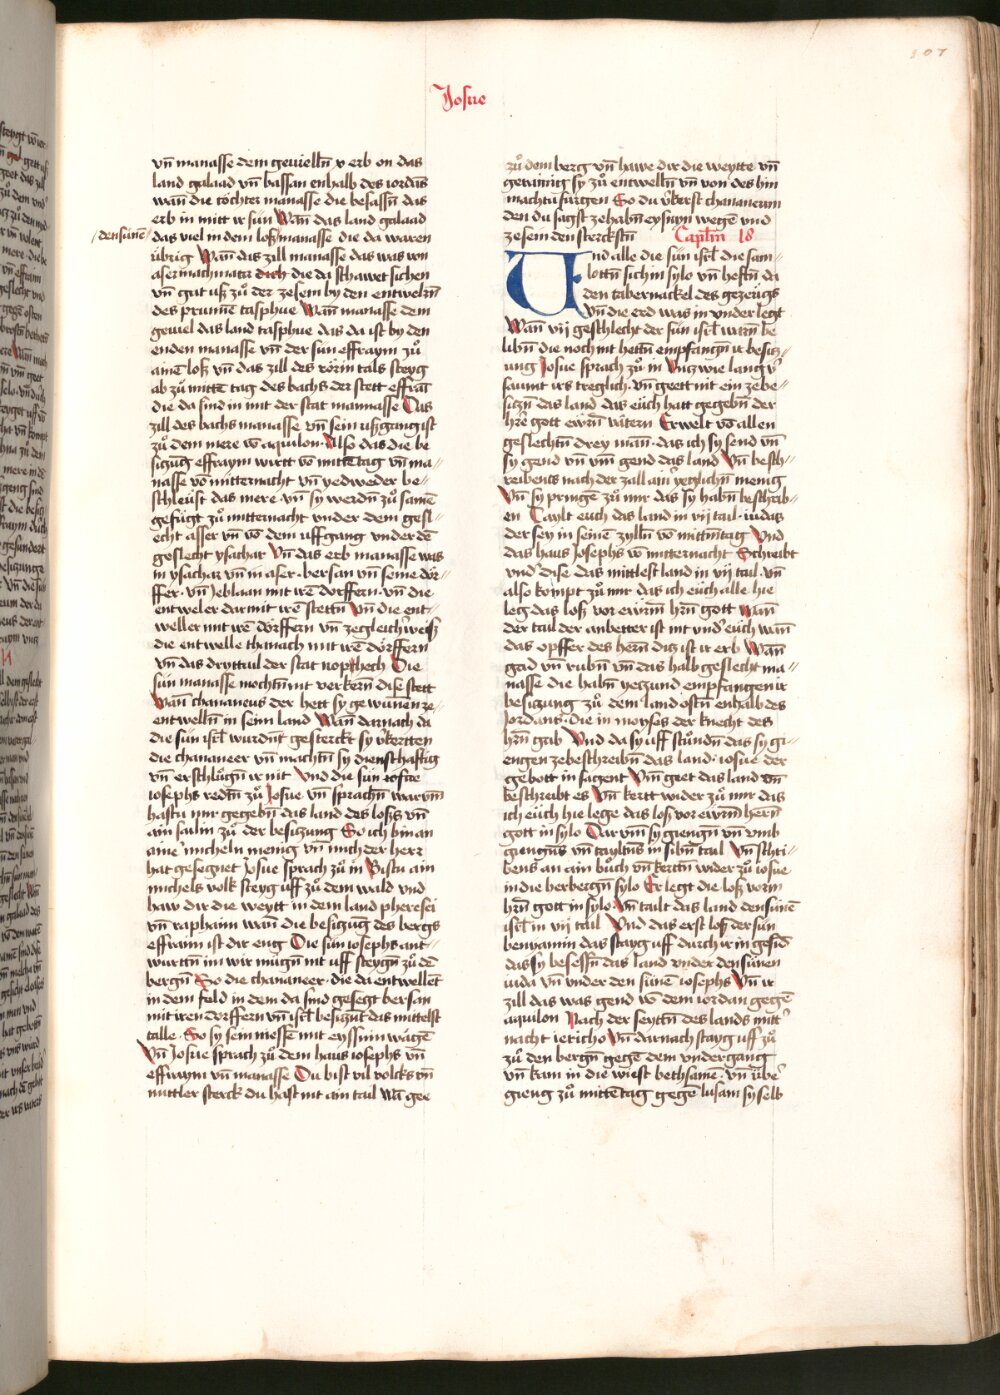 307
Josue
vn̄ manasse dem gevielln̄ x erb on das
land galaad vn̄ bassan enhalb des iordās
wān die töchter manasse die besassn̄ das
erb in mitt ir sün Wān das land galaad
/ den sünē / das viel in dem loß manasse die da waren
übrig Wān das zill manasse das was von
aser machmatz dich die da schawet sichen
vn̄ gat uß zů der zesem by den entwelrn̄
des prunnē tasphue Wān manasse dem
geviel das land tasphue das da ist by den
enden manasse vn̄ der sün effraym zů
ainē loß vn̄ das zill des rörin tals steyg
ab zů mittē tag des bachs der stett effraī
die da sind in mit der stat mannasse Das
zill des bachs manasse vn̄ sein ußgang ist
zů dem mere vō aquilon · Also das die be
siczūg effraym wirtt vō mittētag vn̄ ma⸗
nasse vō mitternacht vn̄ yedweder be⸗
schleüst das mere · vn̄ sy werdn̄ zů samē
gefügt zů mitternacht vnder dem gesl⸗
echt asser vn̄ vō dem uffgang vnder dē
geslecht ysachar Vn̄ das erb manasse was
in ysachar vn̄ in aser · bersan vn̄ seine dör⸗
ffer · vn̄ Jeblaan mit irē dorffern · vn̄ die
entweler dar mit irē stettn̄ Vn̄ die ent⸗
weller mit irē dörffern vn̄ ze gleich weiß
die entwelle thanach mit irē dörffern
vn̄ das dryttail der stat nopthech Die
sün manasse mochtn̄ nit verkern̄ dise stett
Wān chananeus der hett sy gewunen ze⸗
entwelln̄ in seim land Wān darnach da
die sün isrl̄ wurdn̄t gesterckt sy v̄kertten
die chananeer vn̄ machtn̄ sy diensthafftig
vn̄ erschlůgn̄ ir nit Vnd die sün
iosephs redtn̄ zů Josue · vn̄ sprachn̄ warum̄
hastu mir gegebn̄ das land des loß vn̄
ain sailin zů der besiczung So ich bin an
ainē micheln menig vn̄ mich der herr
hat gesegnet Josue sprach zů in Bistu ain
michels volk steyg uff zů dem wald vnd
haw dir die weytt in dem land pheresei
vn̄ raphaim wān die besiczūg des bergs
effraim ist dir eng Die sün iosephs ant⸗
wurttn̄ im wir mügn̄ nit uff steygn̄ zů dē
bergn̄ So die chananeer · die da entwellēt
in dem feld in dem da sind gesegt bersan
mit iren dorffern vn̄ isrl̄ besiczūt das mittelst
talle · So sy sein niessē mit eyssnim wägē
Vn̄ Josue sprach zů dem haus iosephs vn̄
effraym vn̄ manasse Du bist vil volcks vn̄
mittler sterck du hast nit ain tail Wā gee
zů dem berg vn̄ hawe dir die weytte vn̄
geraimig sy zů entwelln̄ vn̄ von des hin
machtu fürgen So du v̄berst chananeum
den du sagst ze habn̄ eysnyn wegē vnd
ze sein den sterckstn̄ Capl̄m 18
Und alle die sün isrl̄ die sam⸗
lottn̄ sich in sylo vn̄ hestn̄ da
den tabernackel des gezeugs
Vn̄ die erd was in vnder legt
Wān vij geschlecht der sün isrl̄ warn̄ be
libn̄ die noch nit hettn̄ empfangn̄ ir besicz⸗
ung Josue sprach zů in Vncz wie lang v̄
saumt irs treglich · vn̄ geet nit ein zebe⸗
siczn̄ das land das eüch hatt gegebn̄ der
hre gott ewrn̄ vätern Erwelt vō allen
geslechtn̄ drey män̄ · das ich sy send vn̄
sy gend vn̄ vm̄ gend das land Vn̄ besch⸗
reibents nach der zall ain yeglichn̄ menig
Vn̄ sy pringē zů mir das sy habn̄ beschrib⸗
en Taylt euch das land in vij tail · iudas
der sey in seinē zylln̄ vō mittm̄tag Vnd
das haus Josephs vō mitternacht Schreibt
vnd dise das mittlest land in vij tail · vn̄
also kompt zů mir das ich eüch alle hie
leg das loß vor ewrm̄ hrn̄ gott Wān
der tail der anbetter ist nit vnd eüch wān
das opffer des hern̄ dicz ist ir erb Wān
gad vn̄ rubn̄ vn̄ das halb geslecht ma⸗
nasse die habn̄ yeczund empfangen ir
besiczung zů dem land ostn̄ enhalb des
Jordans · die in moyses der knecht des
hrn̄ gab Vnd da sy uff stůndn̄ das sy gi⸗
engen zebeschreibn̄ das land · iosue der
gebott in sagent Vm̄ geet das land vn̄
beschreibt es Vn̄ kertt wider zů mir das
ich eüch hie lege das loß vor ewrm̄ hern̄
gott in sylo Dar vm̄ sy giengn̄ vn̄ vmb
giengns vn̄ tayltns in sibn̄ tail Vn̄ schri⸗
bens an ain bůch vn̄ kertn̄ wider zů iosue
in die herbergn̄ sylo Er legt die loß vorm
hrn̄ gott in sylo · Vn̄ tailt das land den sünē
isrl̄ in vij tail Vnd das erst loß der sün
benyamin das stayg uff durch ir in gesīd
das sy besessn̄ das land vnder den sünen
iuda vn̄ vnder den sünē iosephs Vn̄ ir
zill das was gend vō dem iordan gegē
aquilon Nach der seyttn̄ des lands mitt
nacht iericho Vn̄ darnach stayg uff zů
zů den bergn̄ gegē dem vndergang
vn̄ kam in die wiest bethsame · vn̄ ūbe
gieng zů mittē tag gegē lusam sy selb